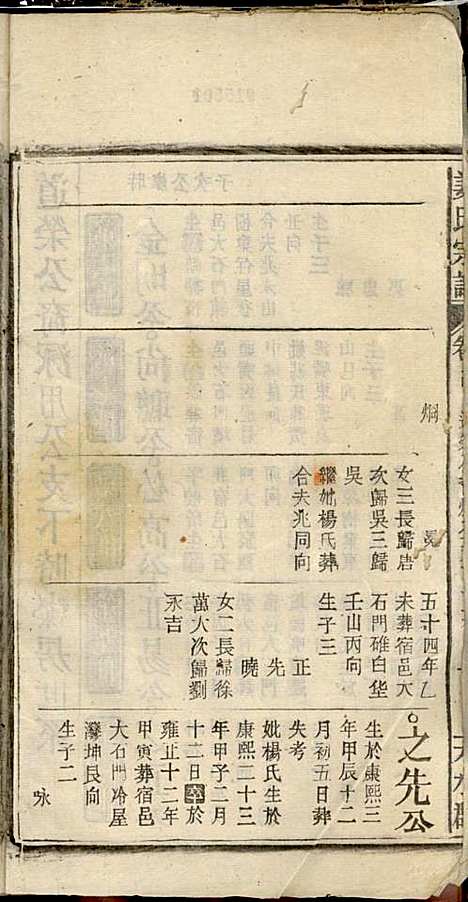 姜氏宗譜
烱
晃
女三長歸唐
次歸吳三歸
吳
繼妣楊氏葬
合夫兆同向
五十四年乙
未葬宿邑大
石門碓白华
壬山丙向
生子三
正
先
曉
女二長歸徐
萬大次歸劉
永吉
之先公
生於康熙三
年甲辰十二
月初五日葬
失考
妣楊氏生於
康熙二十三
年甲子二月
十二日卒於
雍正十二年
甲寅葬宿邑
大石門冷屋
灣坤艮向
生子二
咏
天水郡